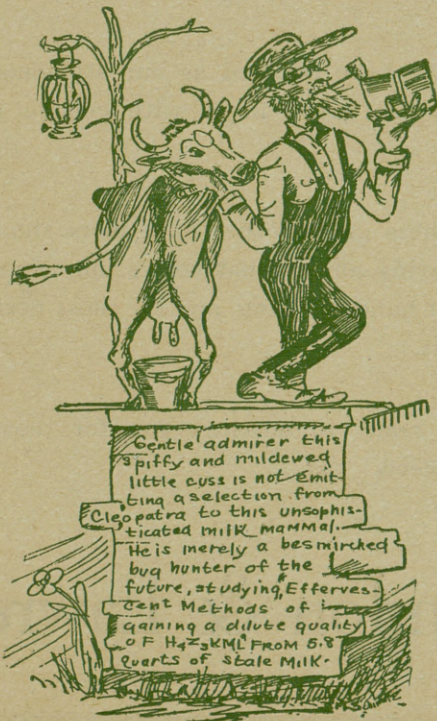 Gentle admirer this
spiffy and mildewed
little cuss is not emit-
ting a selection from
Cleopatra to this unsophis-
ticated milk mammal.
He is merely a besmirched
bug hunter of the
future, studying "Efferves-
cent Methods of in-
gaining a dilute quality
OF H4Z3KML" FROM 5.8
quarts of stale Milk.